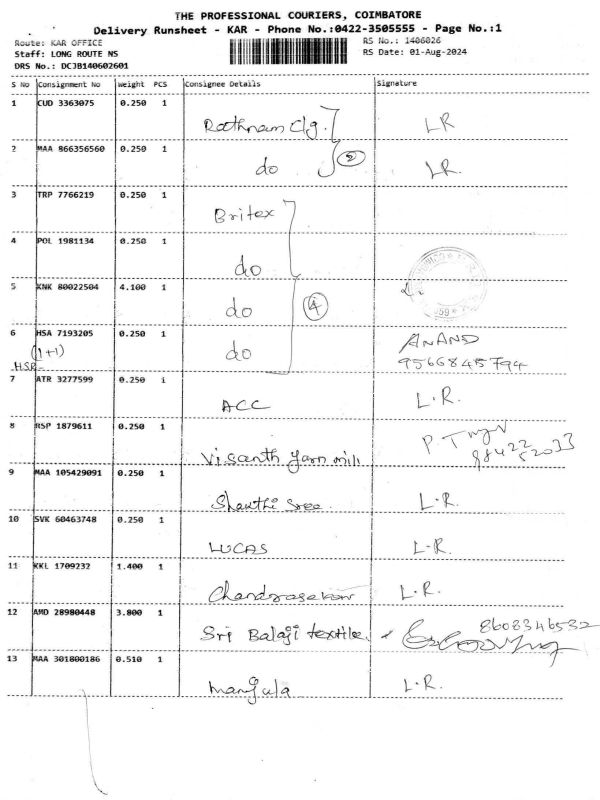 THE PROFESSIONAL COURIERS, COIMBATORE
Delivery Runsheet - KAR - Phone No.:0422-3505555 - Page No.:1
Route: KAR OFFICE RS No.: 1406026
Staff: LONG ROUTE NS RS Date: 01-Aug-2024
DRS No.: DCJB140602601
S No Consignment No Weight PCS Consignee Details Signature
1 CUD 3363075 0.250 1 Rathnam Clg. LR
2 MAA 866356560 0.250 1 do 2 LR.
3 TRP 7766219 0.250 1 Britex
4 POL 1981134 0.250 1 do
5 KNK 80022504 4.100 1 do 4
6 HSA 7193205 0.250 1 do ANAND
(1+1) 9566845794
HSR
7 ATR 3277599 0.250 1 ACC L.R.
8 RSP 1879611 0.250 1 Visanth yarn mill P.
98422
52033
9 MAA 105429091 0.250 1 Shanthi Sree. L.R.
10 SVK 60463748 0.250 1 LUCAS L.R.
11 KKL 1709232 1.400 1 Chandrasekar L.R.
12 AMD 28980448 3.800 1 Sri Balaji textile 8608346532
13 MAA 301800186 0.510 1 Mangala L.R.